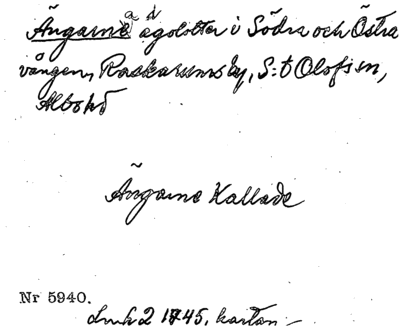 Ängarne ägolotter i Södra och Östra
vången, Raskarums by, S:t Olofs sn,
Albo hd
Ängarne Kallade
Nr 5940.
Lmk 2 1745, kartan